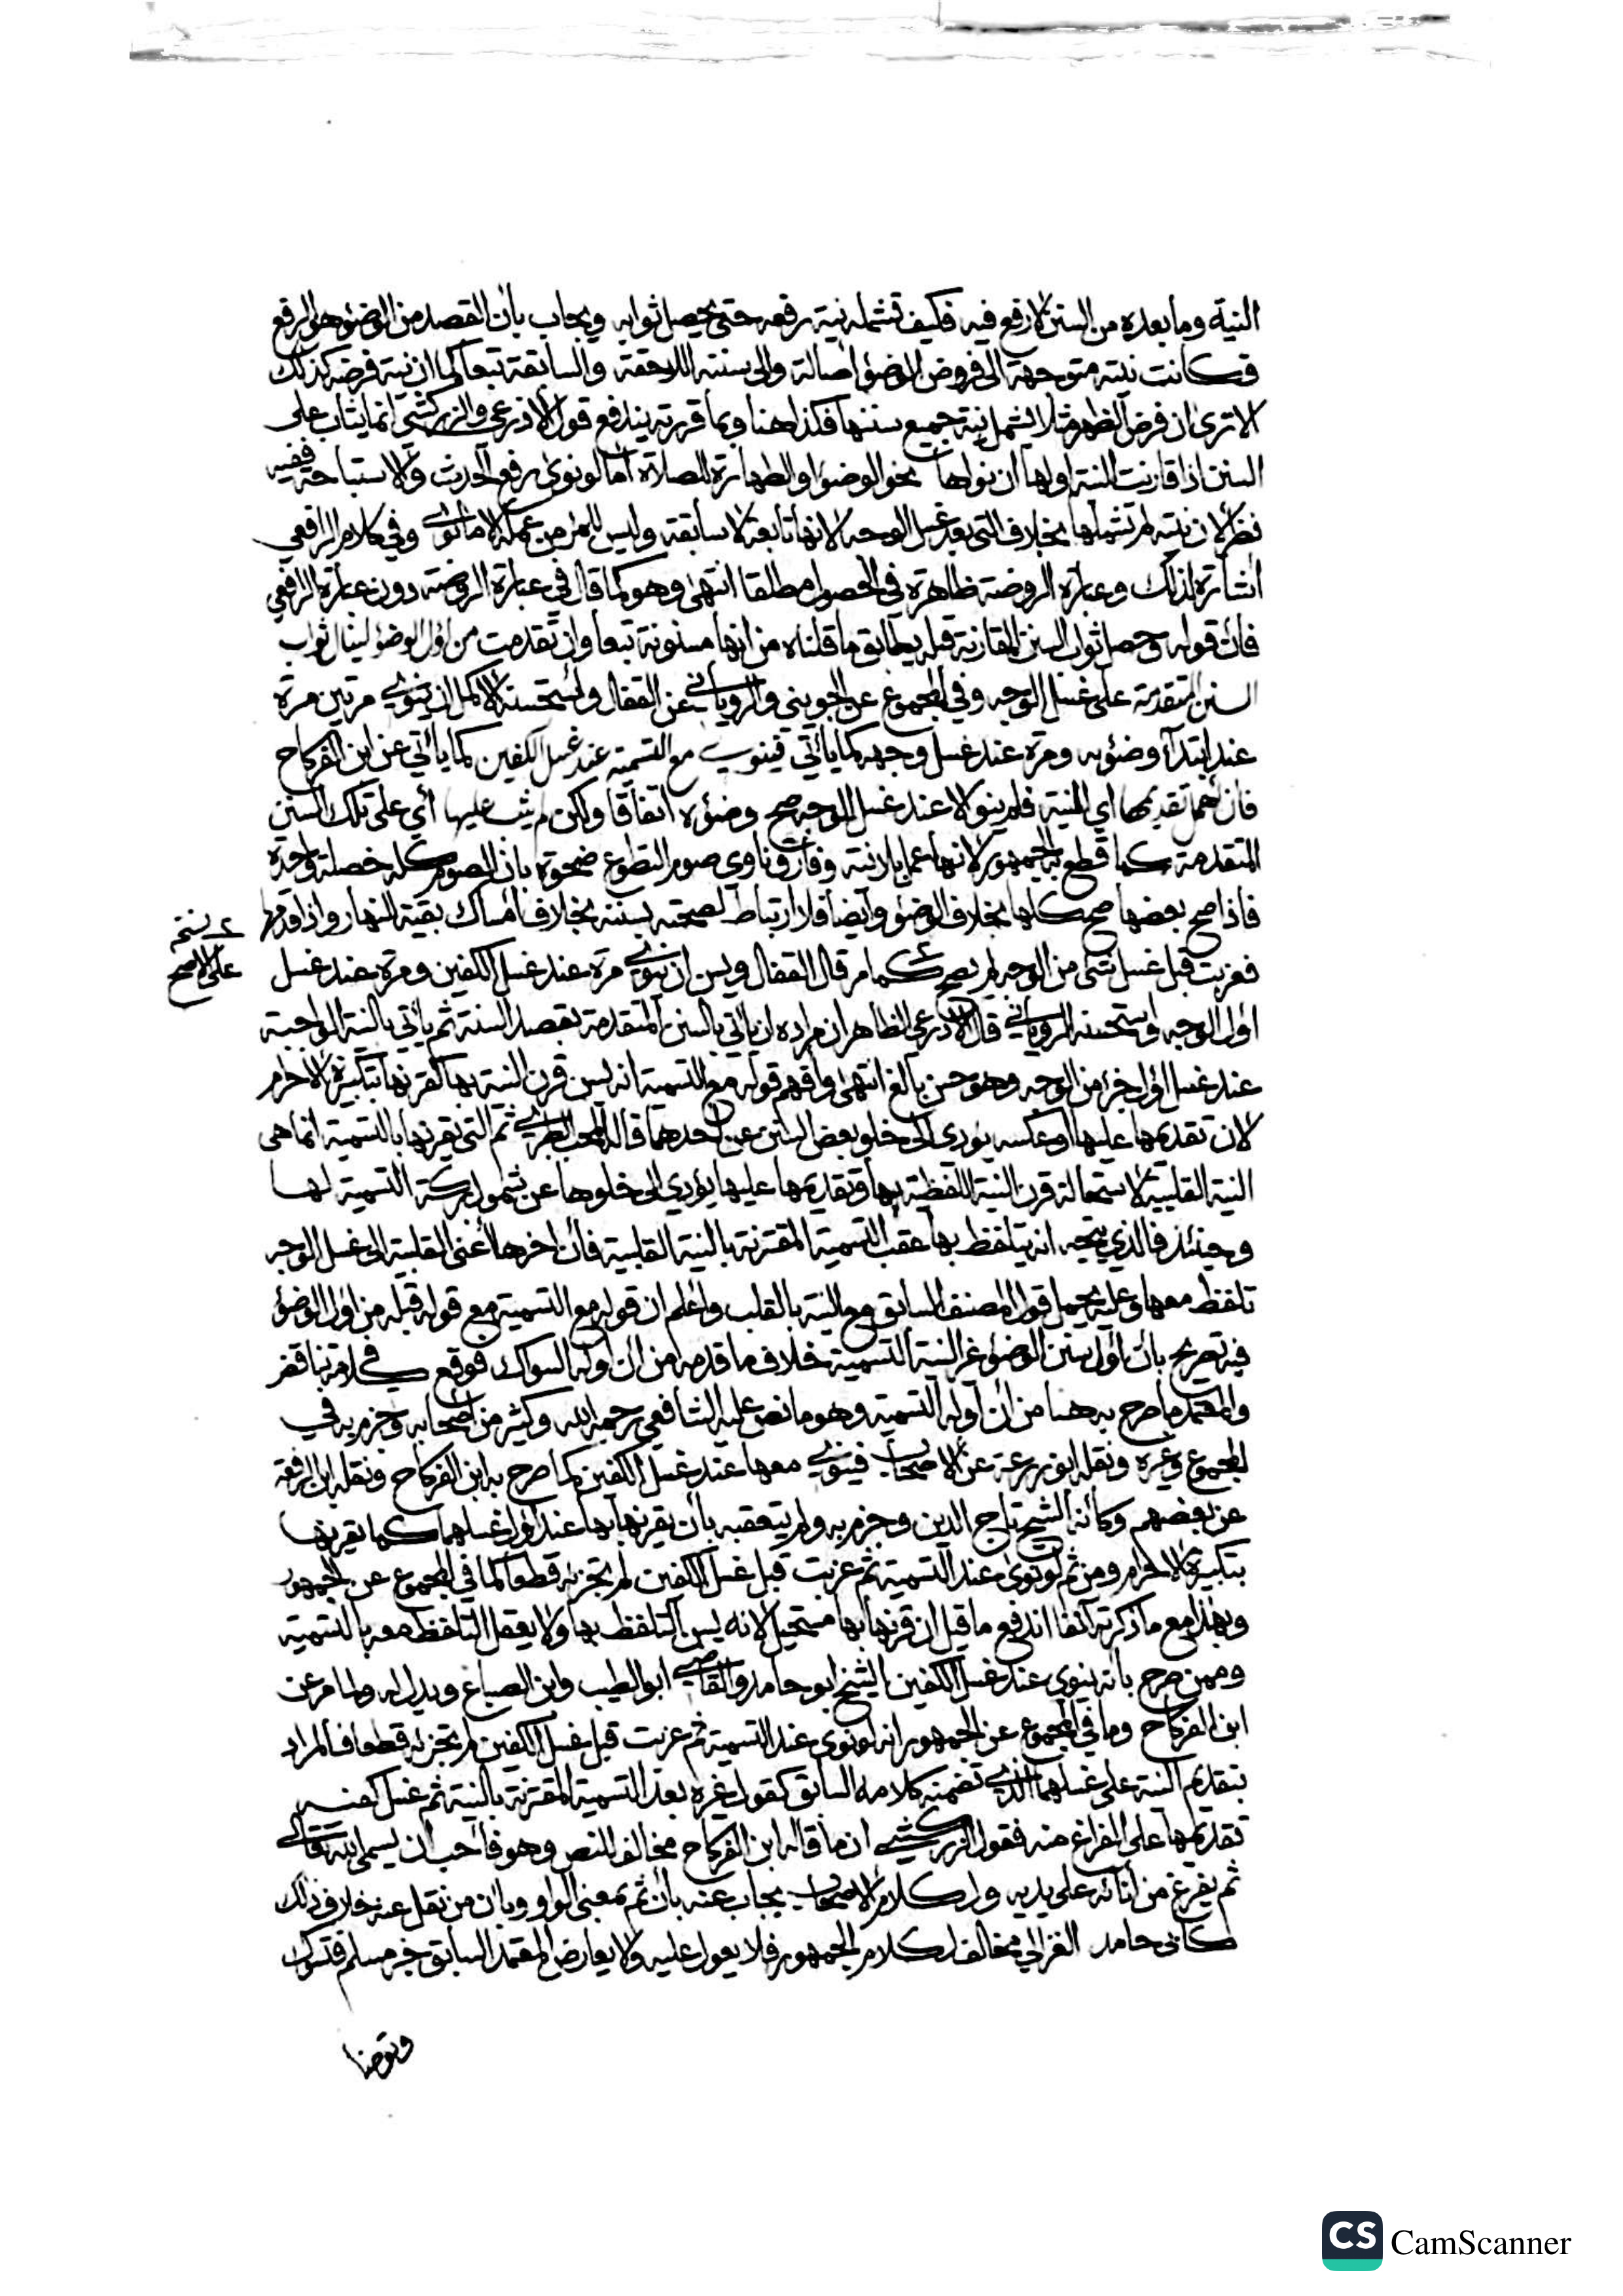 النية وما بعده من السنن لا رفع فيه فكيف تشمله نية رفعه حتى يحصل ثوابه ويجاب بان القصد من الوضوء هو الرفع
فكانت نيته متوجهة الى فروض الوضوء اصالة والى سننه اللاحقة والسابقة تبعا كما ان نية فرضه كذلك
الا ترى ان فرض الظهر مثلا يشمل نية جميع سننها فكذا هنا وبما قررته يندفع قول الاذرعي والزركشي انما يثاب على
السنن اذا قارنت النية اولها ان نواها بنحو الوضوء او الطهارة للصلاة اما لو نوى رفع الحدث والاستباحة ففيه
نظر لان نيته لم تشملها بخلاف التي بعد غسل الوجه لانها تابعة لا سابقة وليس للمرء من عمله الا ما نوى وفي كلام الرافعي
اشارة لذلك وعبارة الروضة ظاهرة في الحصول مطلقا انتهى وهو كما قال في عبارة الروضة دون عبارة الرافعي
فان قوله وحصل ثواب السنن المقارنة قبله يطابق ما قلناه من انها مسنونة تبعا وان تقدمت من اول الوضوء لينال ثواب
السنن المتقدمة على غسل الوجه وفي المجموع عن الجويني والروياني عن القفال واستحسنه الاكمل ان ينوي مرتين مرة
عند ابتداء وضوءه ومرة عند غسل وجهه كما يأتي فينوي مع التسمية عند غسل الكفين كما يأتي عن ابن الفركاح
فان اهمل تقديمها اي النية فلم ينو الا عند غسل الوجه صح وضوءه اتفاقا ولكن لم يثب عليها أي على تلك السنن
المتقدمة كما قطع به الجمهور لانها عمل بلا نية وفارق ناوي صوم التطوع ضحوة بان الصوم كله خصلة واحدة
فاذا صح بعضها صح كلها بخلاف الوضوء وايضا فلا ارتباط لصحته بسننه بخلاف امساك بقية النهار واذا قدمها
نسخة
على الاصح
فعزبت قبل غسل شئ من الوجه لم يصح كما مر قال القفال ويسن ان ينوي مرة عند غسل الكفين ومرة عند غسل
اول الوجه واستحسنه الروياني قال الاذرعي الظاهر ان مراده ان ياتي بالسنن المتقدمة بقصد السنة ثم يأتي بالنية الواجبة
عند غسل اول جزء من الوجه وهو حسن بالغ انتهى وافهم قوله مع التسمية انه يسن قرن النية بها كقرنها بتكبيرة الاحرام
لان تقديمها عليها او عكسه يؤدي الى خلو بعض السنن عن احدهما قاله المحب الطبري ثم التي يقرنها بالتسمية انما هي
النية القلبية لاستحالة قرن النية اللفظية بها وتقديمها عليها يؤدي الى خلوها عن شمول بركة التسمية لها
وحينئذ فالذي يتجه انه يتلفظ بها عقب التسمية المقترنة بالنية القلبية فان اخرها اعني القلبية الى غسل الوجه
تلفظ معها وعليه يحمل قول المصنف السابق مع النية بالقلب واعلم ان قوله مع التسمية مع قوله قبله من اول الوضوء
فيه تصريح بان اول سنن الوضوء غير النية التسمية خلاف ما قدمه من ان اوله السواك فوقع في كلامه تناقض
والمعتمد ما صرح به هنا من ان اوله التسمية وهو ما نص عليه الشافعي رحمه الله وكثير من اصحابه وجزم به في
المجموع وغيره ونقله ابو زرعة عن الاصحاب فينوي معها عند غسل الكفين كما صرح به ابن الفركاح ونقله ابن الرفعة
عن بعضهم وكأنه الشيخ تاج الدين وجزم به ولم يتعقبه بأن يقرنها بها عند اول غسلهما كما يقرنها
بتكبيرة الاحرام ومن ثم لو نوى عند التسمية ثم عزبت قبل غسل الكفين لم تجزئه قطعا كما في المجموع عن الجمهور
وبهذا مع ما ذكرته آنفا اندفع ما قيل ان قرنها بها مستحيل لانه يسن التلفظ بها ولا يعقل التلفظ معه بالتسمية
وممن صرح بانه ينوي عند غسل الكفين الشيخ ابو حامد والقاضي ابو الطيب وابن الصباغ ويدل له ولما مر عن
ابن الفركاح وما في المجموع عن الجمهور انه لو نوى عند التسمية ثم عزبت قبل غسل الكفين لم تجزئه قطعا فالمراد
بتقديم النية على غسلهما الذي تضمنه كلامه السابق كقول غيره بعد التسمية المقترنة بالنية ثم غسل كفيه
تقديمها على الفراغ منه فقول الزركشي ان ما قاله ابن الفركاح مخالف للنص وهو فأحب ان يسمي الله تعالى
ثم يفرغ من انائه على يديه ولكلام الاصحاب يجاب عنه بان ثم بمعنى الواو وبان من نقل عنه خلاف ذلك
كابى حامد الغزالي مخالف لكلام الجمهور فلا يعول عليه ولا يعارض المعتمد السابق خبر مسلم فتسوك
وتوضا
CS CamScanner